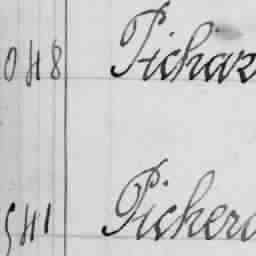 048 Pichar
541 Picher